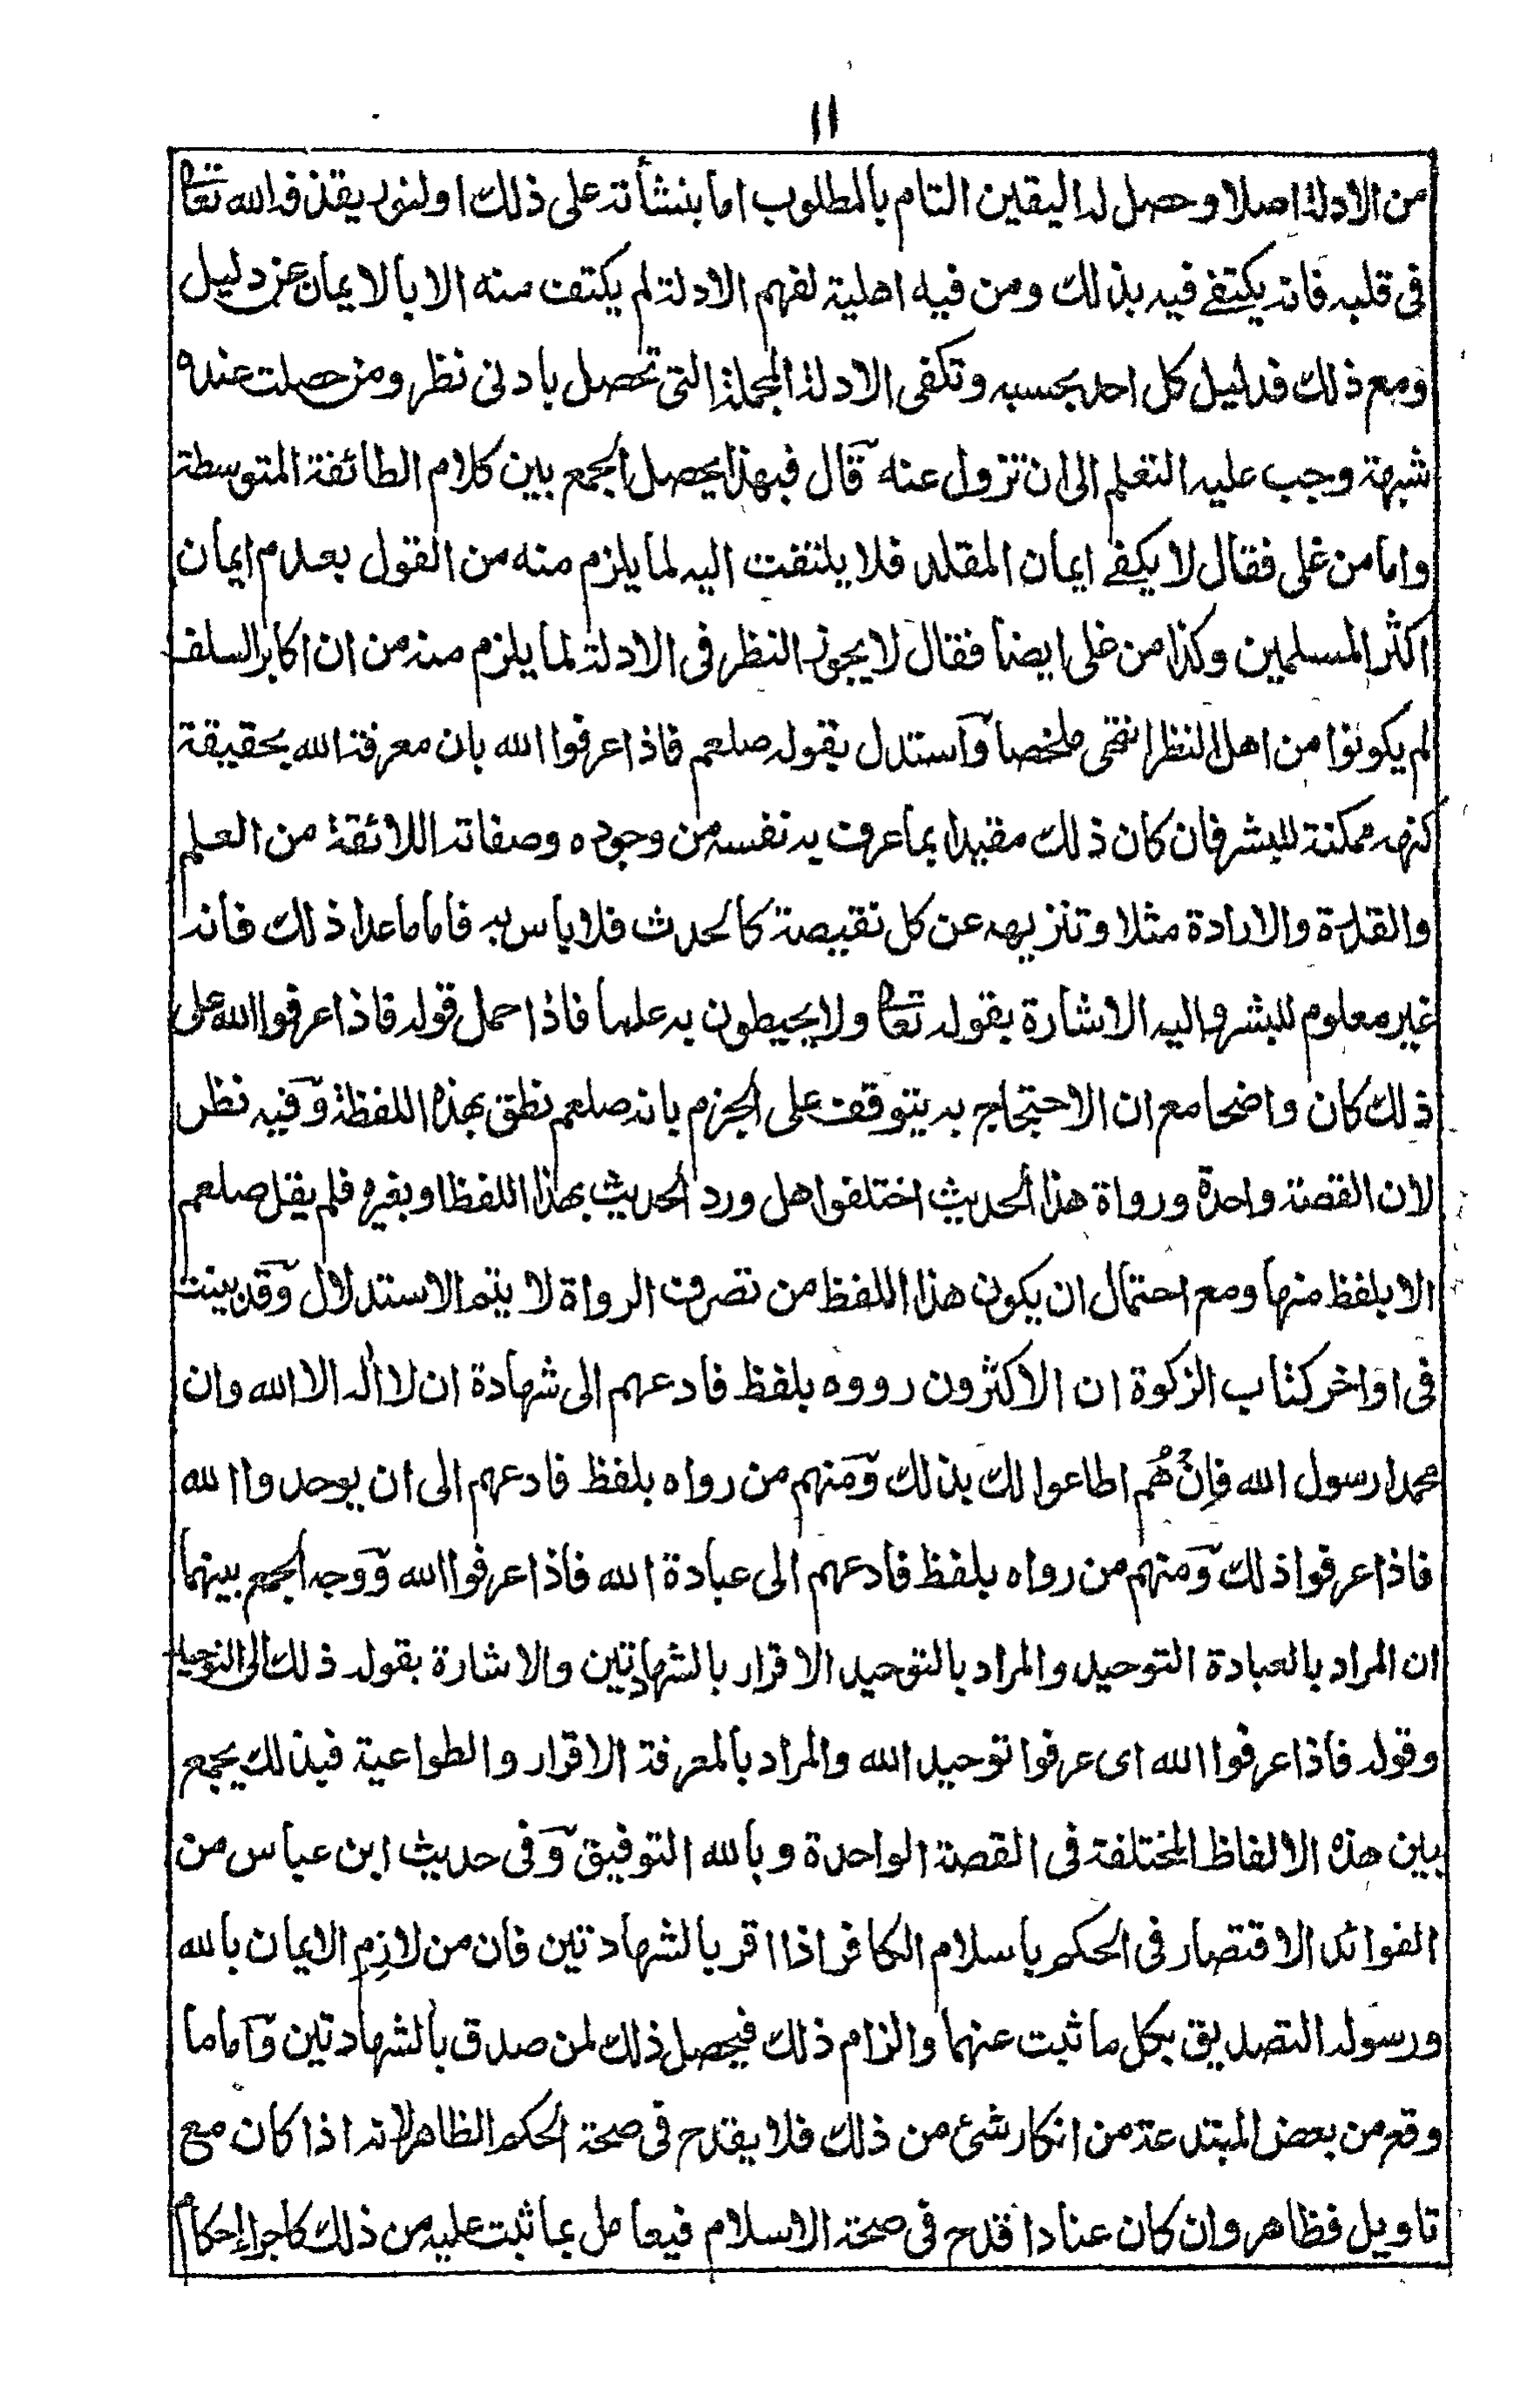 ١١
من الادلة اصلا وحصل له اليقين التام بالمطلوب اما بنشأته على ذلك او لنور يقذفه الله تعا
فى قلبه فانه يكتفے فيه بذلك ومن فيه اهلية لفهم الادلة لم يكتف منه الا بالايمان عن دليل
ومع ذلك فدليل كل احد بحسبه وتكفى الادلة المجملة التى تحصل بادنى نظر ومن حصلت عنده
شبهة وجب عليه التعلم الى ان تزول عنه قال فبهذا يحصل الجمع بين كلام الطائفة المتوسطة
واما من غلى فقال لا يكفے ايمان المقلد فلا يلتفت اليه لما يلزم منه من القول بعدم ايمان
اكثر المسلمين وكذا من غلى ايضا فقال لا يجوز النظر فى الادلة لما يلزم منه من ان اكابر السلف
لم يكونوا من اهل النظر انتهى ملخصا وآستدل بقوله صلعم فاذا عرفوا الله بان معرفة الله بحقيقة
كنهه ممكنة للبشر فان كان ذلك مقيدا بما عرف به نفسه من وجوده وصفاته اللائقة من العلم
والقدرة والارادة مثلا وتنزيهه عن كل نقيصة كالحدث فلا باس به فاما ما عدا ذلك فانه
غير معلوم للبشر واليه الاشارة بقوله تعا ولا يحيطون به علما فاذا حمل قوله فاذا عرفوا الله على
ذلك كان واضحا مع ان الاحتجاج به يتوقف على الجزم بانه صلعم نطق بهذه اللفظة وفيه نظر
لان القصة واحدة ورواة هذا الحديث اختلفوا هل ورد الحديث بهذا اللفظ او بغيره فلم يقل صلعم
الا بلفظ منها ومع احتمال ان يكون هذا اللفظ من تصرف الرواة لا يتم الاستدلال وقد بينت
فى اواخر كتاب الزكوة ان الاكثرون رووه بلفظ فادعهم الى شهادة ان لا اله الا الله وان
محمدا رسول الله فإن هُم اطاعوا لك بذلك ومنهم من رواه بلفظ فادعهم الى ان يوحدوا الله
فاذا عرفوا ذلك ومنهم من رواه بلفظ فادعهم الى عبادة الله فاذا عرفوا الله ووجه الجمع بينهما
ان المراد بالعبادة التوحيد والمراد بالتوحيد الاقرار بالشهادتين والاشارة بقوله ذلك الى التوحيد
وقوله فاذا عرفوا الله اى عرفوا توحيد الله والمراد بالمعرفة الاقرار والطواعية فبذلك يجمع
بين هذه الالفاظ المختلفة فى القصة الواحدة وبالله التوفيق وفى حديث ابن عباس من
الفوائد الاقتصار فى الحكم باسلام الكافر اذا اقر بالشهادتين فان من لازم الايمان بالله
ورسوله التصديق بكل ما ثبت عنهما والزام ذلك فيحصل ذلك لمن صدق بالشهادتين وآما ما
وقع من بعض المبتدعة من انكار شئ من ذلك فلا يقدح فى صحة الحكم الظاهر لانه اذا كان مع
تاويل فظاهر وان كان عنادا قدح فى صحة الاسلام فيعامل بما ثبت عليه من ذلك كاجراء احكام